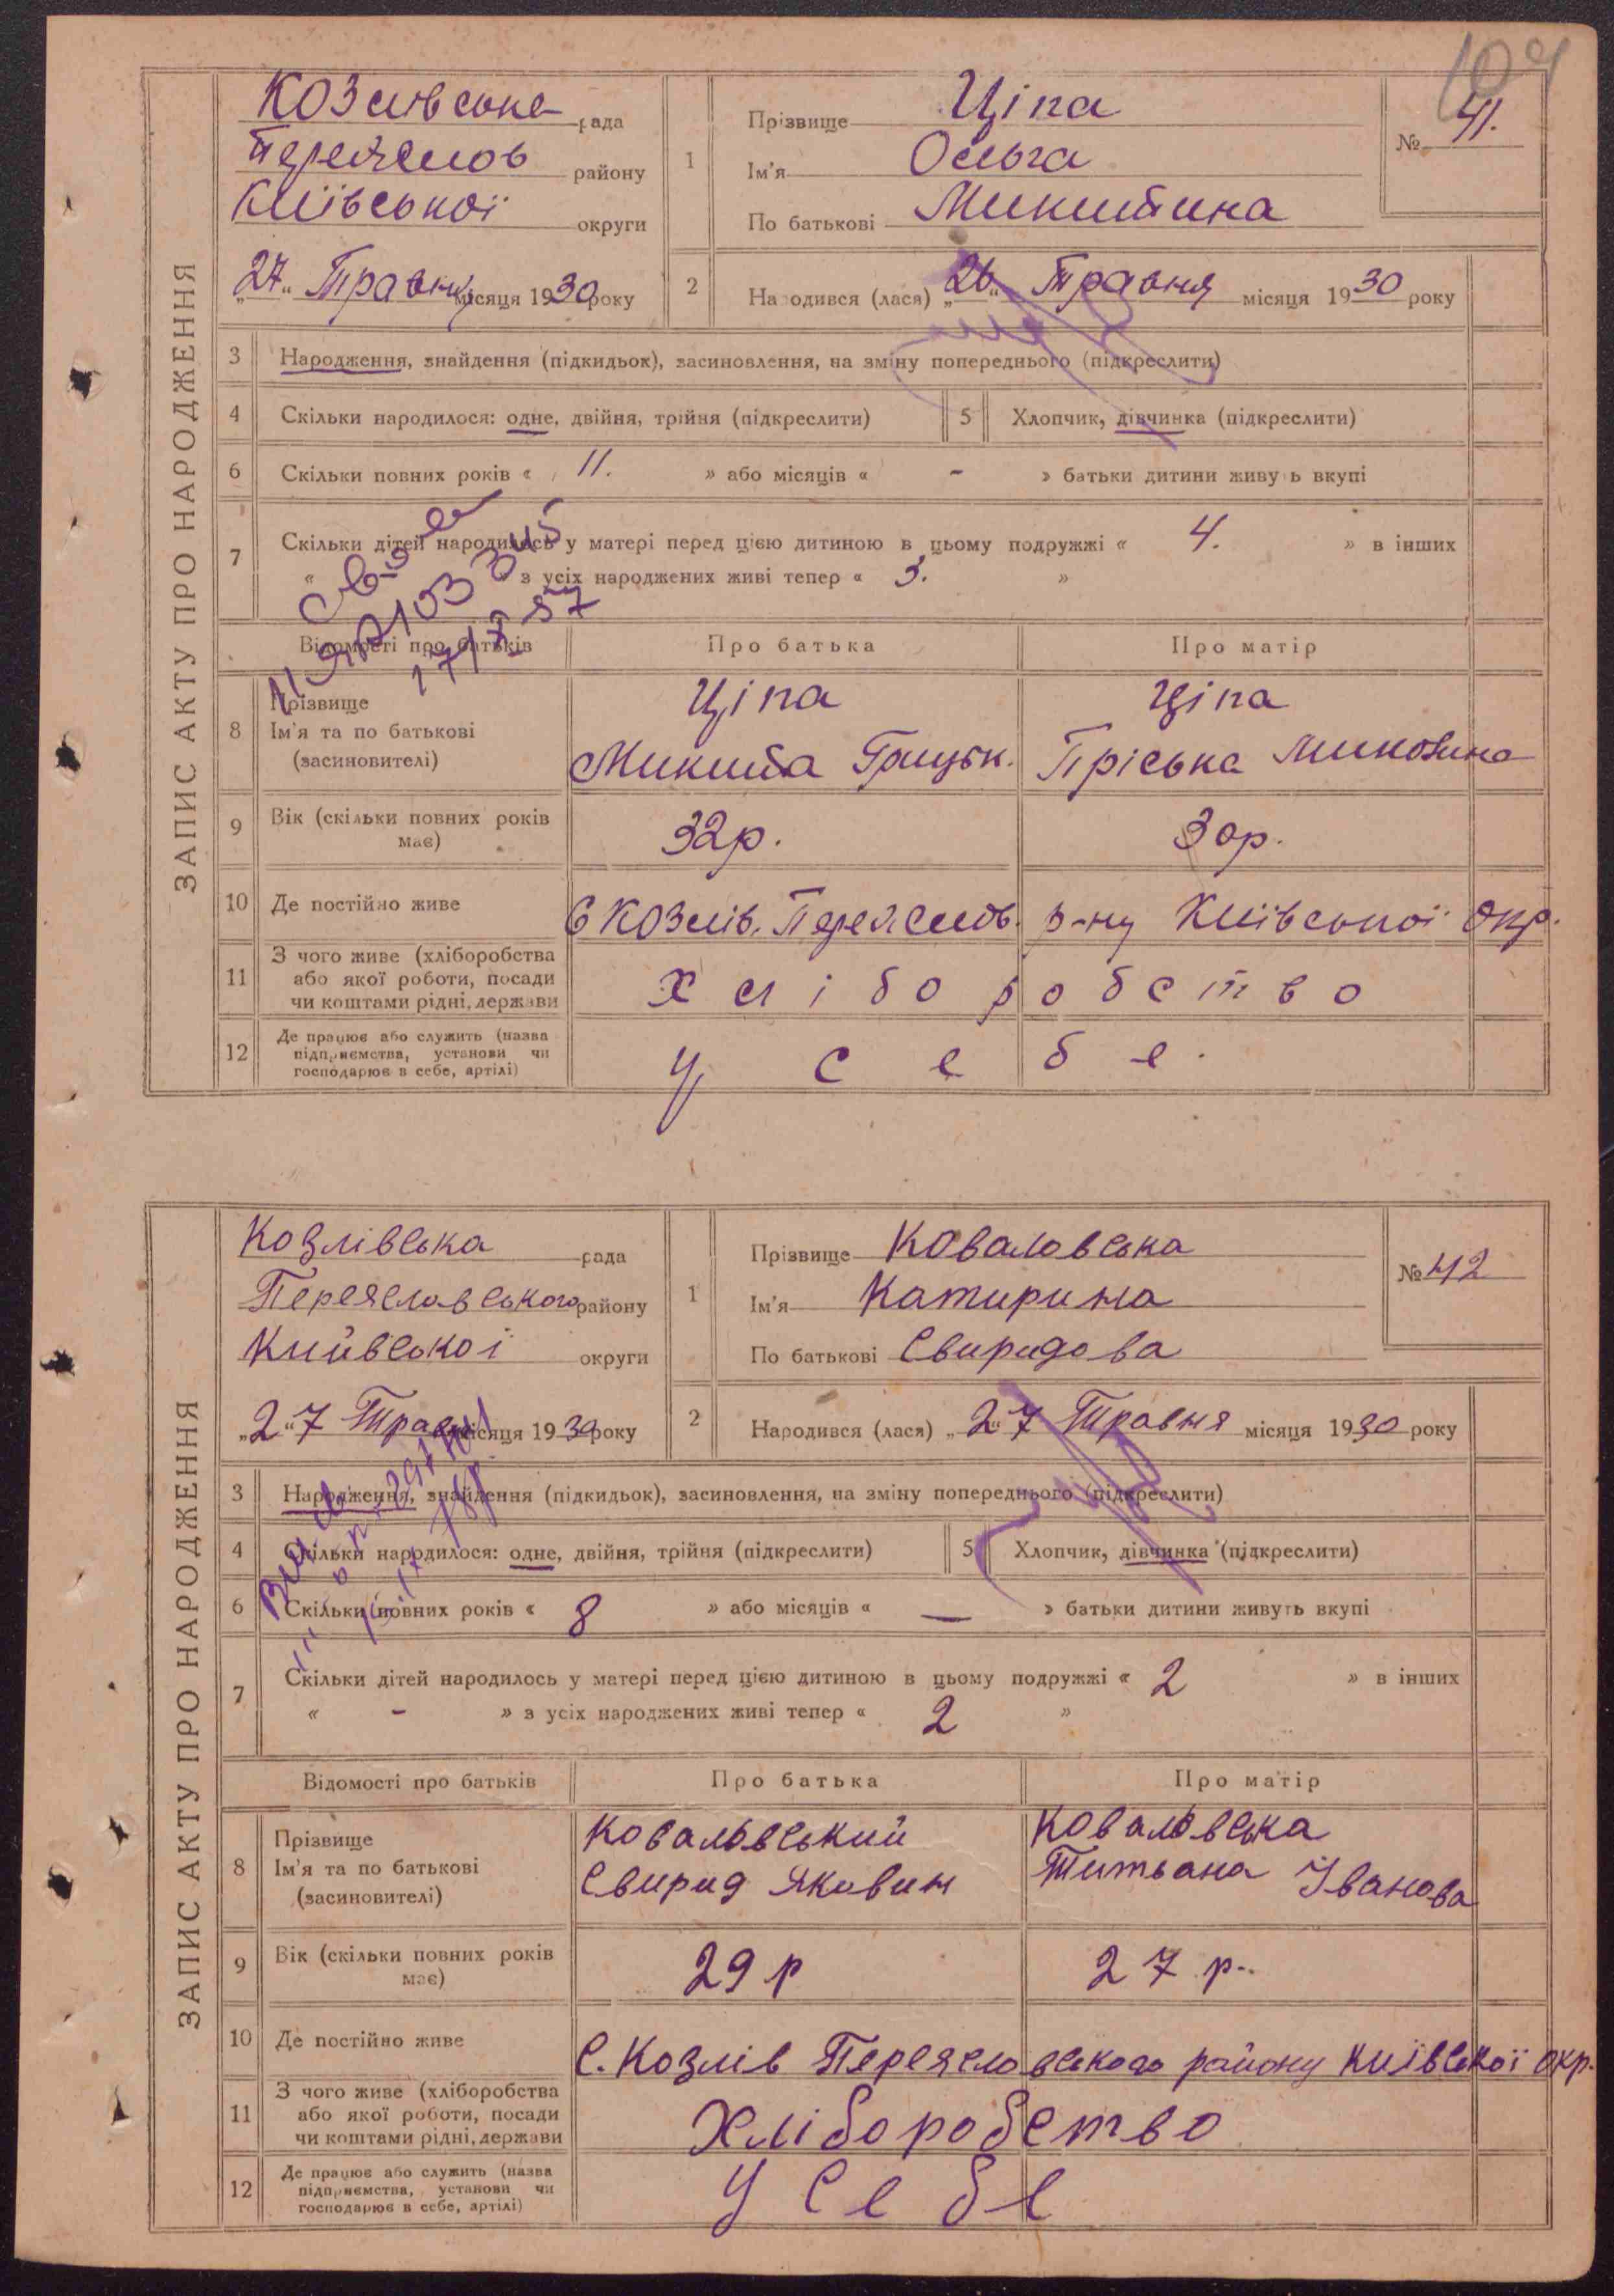 104
ЗАПИС АКТУ ПРО НАРОДЖЕННЯ
Козлівська рада
Переяслов району
Київської округи
„27“ Травня місяця 1930 року
1 Прізвище Ціпа
Ім'я Ольга
По батькові Микитина
№ 41.
2 Народився (лася) „26“ Травня місяця 1930 року
3 Народження, знайдення (підкидьок), засиновлення, на зміну попереднього (підкреслити)
4 Скільки народилося: одне, двійня, трійня (підкреслити) 5 Хлопчик, дівчинка (підкреслити)
6 Скільки повних років « 11. » або місяців « - » батьки дитини живуть вкупі
7 Скільки дітей народилось у матері перед цією дитиною в цьому подружжі « 4. » в інших
« » з усіх народжених живі тепер « 3. »
Відомості про батьків Про батька Про матір
8 Прізвище Ціпа Ціпа
Ім'я та по батькові Микита Грицьк. Пріська
(засиновителі)
9 Вік (скільки повних років має) 32р. 30р.
10 Де постійно живе С Козлів. Переяслов. р-ну Київської окр.
11 З чого живе (хліборобства
або якої роботи, посади хліборобство
чи коштами рідні, держави
12 Де працює або служить (назва
підприємства, установи чи у себе.
господарює в себе, артілі)
ЗАПИС АКТУ ПРО НАРОДЖЕННЯ
Козлівська рада
Переяславського району
Київської округи
„27“ Травня місяця 1930 року
1 Прізвище Коваловська
Ім'я Катирина
По батькові Свиридова
№ 42
2 Народився (лася) „27“ Травня місяця 1930 року
3 Народження, знайдення (підкидьок), засиновлення, на зміну попереднього (підкреслити)
4 Скільки народилося: одне, двійня, трійня (підкреслити) 5 Хлопчик, дівчинка (підкреслити)
6 Скільки повних років « 8 » або місяців « — » батьки дитини живуть вкупі
7 Скільки дітей народилось у матері перед цією дитиною в цьому подружжі « 2 » в інших
« - » з усіх народжених живі тепер « 2 »
Відомості про батьків Про батька Про матір
8 Прізвище Ковальвський Ковальвська
Ім'я та по батькові Свирид Яковин Титьана Іванова
(засиновителі)
9 Вік (скільки повних років має) 29 р 27 р.
10 Де постійно живе С. Козлів Переяславського району Київської окр.
11 З чого живе (хліборобства
або якої роботи, посади Хліборобство
чи коштами рідні, держави
12 Де працює або служить (назва
підприємства, установи чи У себе
господарює в себе, артілі)